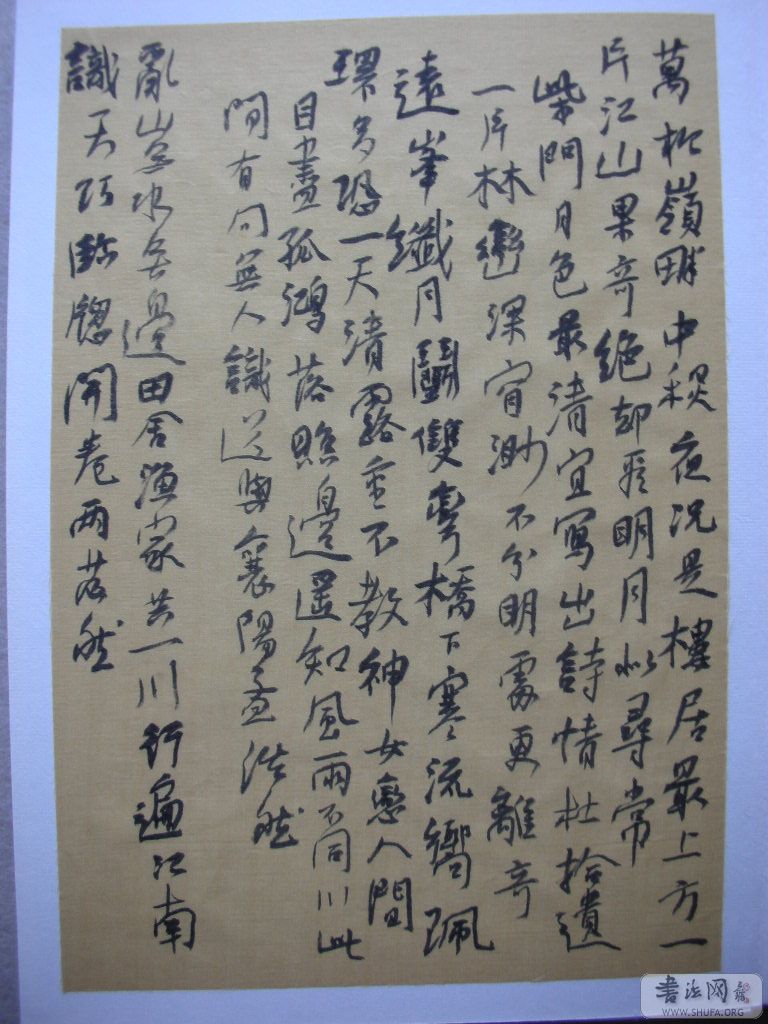 萬松嶺畔中秋夜況是樓居最上方一
片江山果奇絶却看明月似尋常
柴門月色最清宜寫出詩情杜拾遺
一片林巒深窅渺不分明處更離奇
遠峯纖月鬪雙彎橋下寒流響珮
環多恐一天清露重不教神女戀人間
目盡孤鴻落照邊遥知風雨不同川此
間有句無人識送與襄陽孟浩然
亂山吞水無邊田舍漁家共一川行遍江南
識天巧臨窓開卷兩茫然
書法网
WWW.SHUFA.ORG